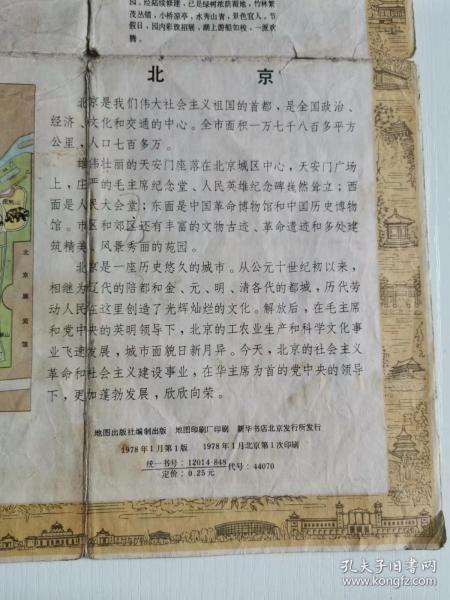 园。经陆续修建，已是绿树浓荫覆地，竹林繁
茂丛错，小桥凉亭，水秀山青，景色宜人。节
假日，园内彩旗招展，湖上游船如梭，一派欢
腾。
北京
北京是我们伟大社会主义祖国的首都，是全国政治、
经济、文化和交通的中心。全市面积一万七千八百多平方
公里，人口七百多万。
雄伟壮丽的天安门座落在北京城区中心，天安门广场
上，庄严的毛主席纪念堂、人民英雄纪念碑巍然耸立；西
面是人民大会堂；东面是中国革命博物馆和中国历史博物
馆。市区和郊区还有丰富的文物古迹、革命遗迹和多处建
筑精美、风景秀丽的花园。
北京是一座历史悠久的城市。从公元十世纪初以来，
相继为辽代的陪都和金、元、明、清各代的都城，历代劳
动人民在这里创造了光辉灿烂的文化。解放后，在毛主席
和党中央的英明领导下，北京的工农业生产和科学文化事
业飞速发展，城市面貌日新月异。今天，北京的社会主义
革命和社会主义建设事业，在华主席为首的党中央的领导
下，更加蓬勃发展，欣欣向荣。
地图出版社编制出版 地图印刷厂印刷 新华书店北京发行所发行
1978年1月第1版 1978年1月北京第1次印刷
统一书号：12014·848 代号：44070
定价：0.25元
北京展览馆
孔夫子旧书网
www.kongfz.com